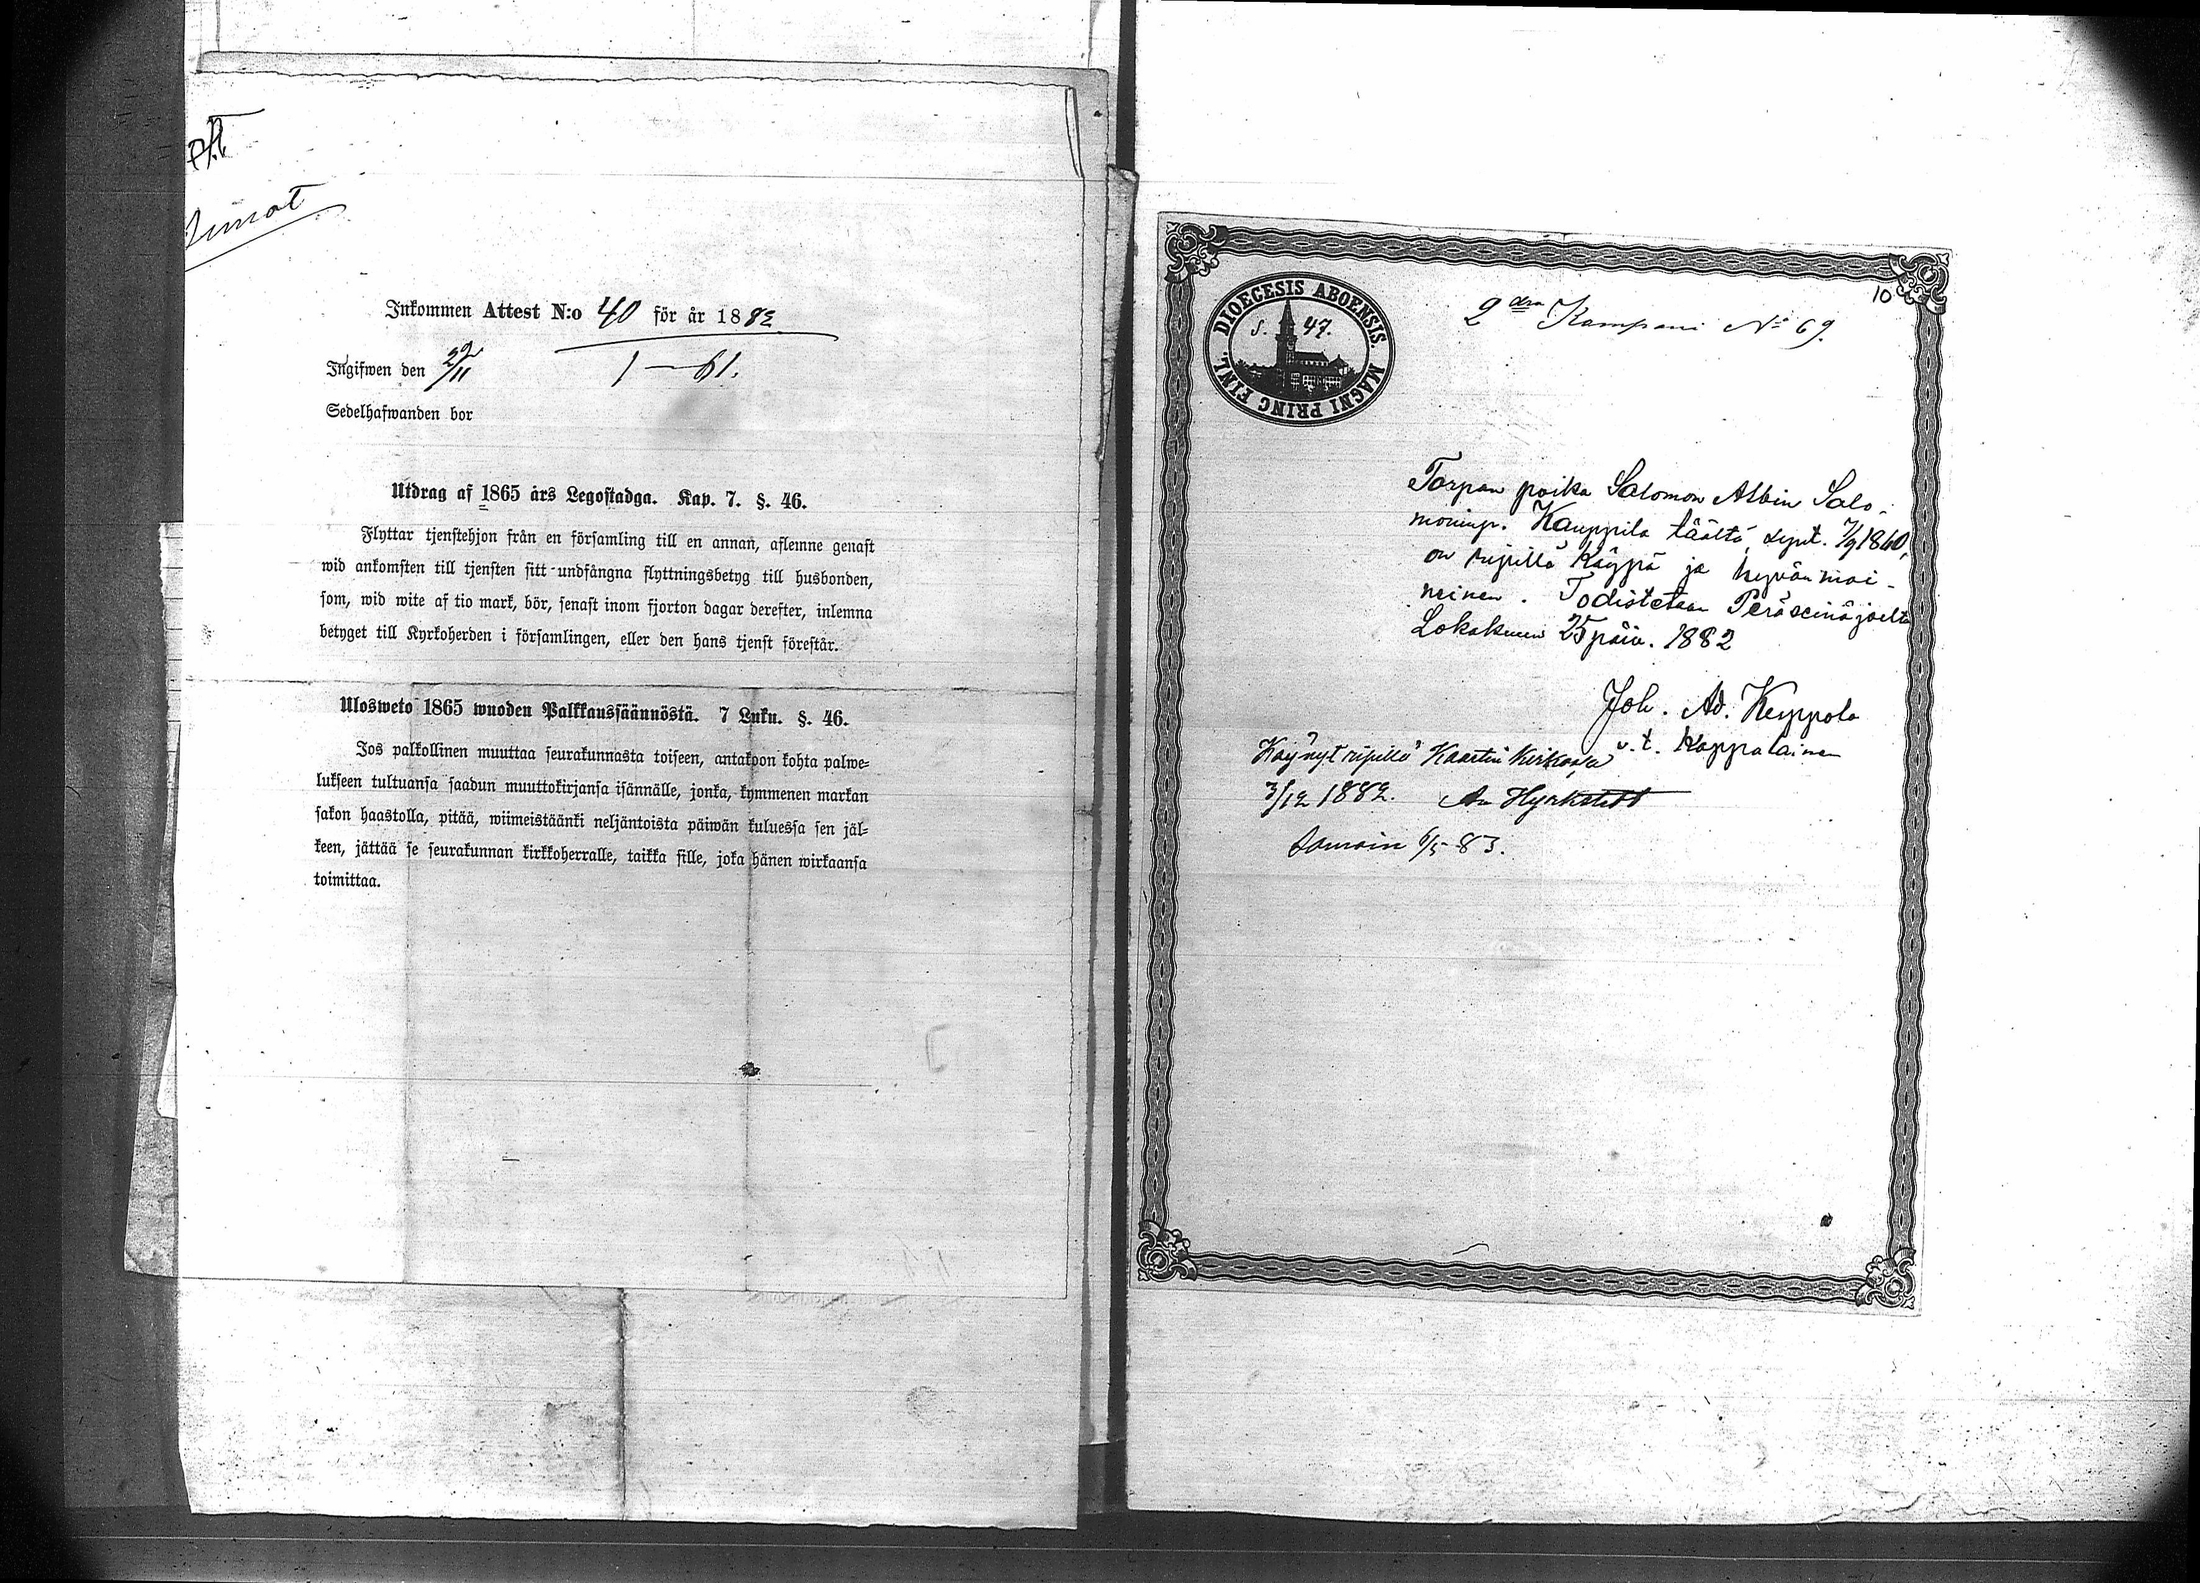 Inkommen Attest N:o 40 för år 1882
Ingifwen den 29/11
1–61.
Sedelhafwanden bor
Utdrag af 1865 års Legostadga. Kap. 7. §. 46.
Flyttar tjenstehjon från en församling till en annan, aflemne genast
wid ankomsten till tjensten sitt undfångna flyttningsbetyg till husbonden,
som, wid wite af tio mark, bör, senast inom fjorton dagar derefter, inlemna
betyget till Kyrkoherden i församlingen, eller den hans tjenst förestår.
Ulosweto 1865 wuoden Palkkaussäännöstä. 7 Luku. §. 46.
Jos palkollinen muuttaa seurakunnasta toiseen, antakoon kohta palwe=
lukseen tultuansa saadun muuttokirjansa isännälle, jonka, kymmenen markan
sakon haastolla, pitää, wiimeistäänki neljäntoista päiwän kuluessa sen jäl=
keen, jättää se seurakunnan kirkkoherralle, taikka sille, joka hänen wirkaansa
toimittaa.
10
DIOECESIS ABOENSIS. MAGNI PRINC FINL.
S. 47.
2dra Kompani No 69.
Torpan poika Salomon Albin Salo-
moninp. Kauppila täältä, synt. 7/9 1860,
on ripillä käypä ja hyvänmai-
neinen. Todistetaan Peräseinäjoelta
Lokakuun 25 päiv. 1882
Joh. Ad. Keppola
v. t. Kappalainen
Käynyt ripillä Kaartin Kirkossa
3/12 1882. Hyrkstedt
Samoin 6/5 83.